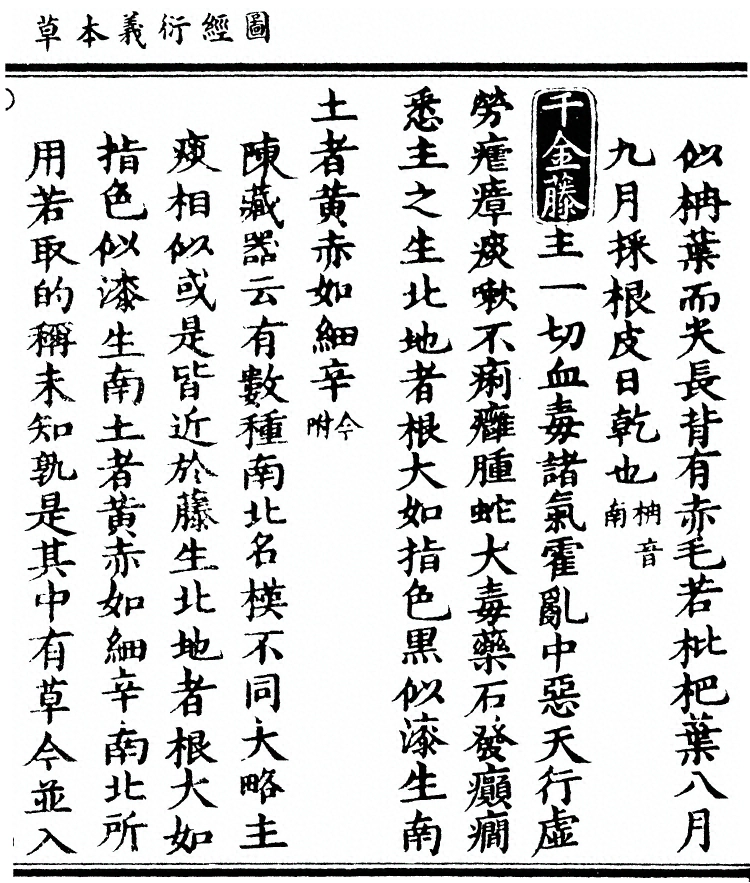 圖經衍義本草
似柟葉而尖長背有赤毛若枇杷葉八月
九月採根皮日乾也柟音南
千金藤主一切血毒諸氣霍亂中惡天行虛
勞瘧瘴痰嗽不痢癰腫蛇大毒藥石發癲癇
悉主之生北地者根大如指色黑似漆生南
土者黃赤如細辛今附
陳藏器云有數種南北名模不同大略主
痰相似或是皆近於藤生北地者根大如
指色似漆生南土者黃赤如細辛南北所
用若取的稱未知孰是其中有草今並入